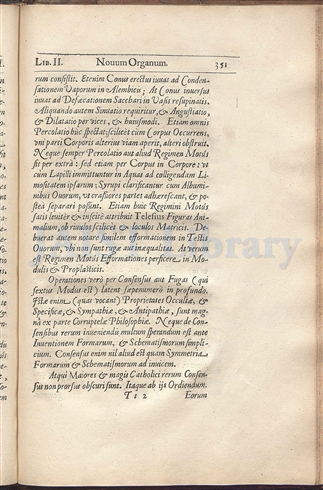 LIB. II. Nouum Organum. 351
rum consistit. Etenim Conus erectus iuuat ad Conden-
sationem Vaporum in Alembicis; At Conus inuersus
iuuat ad Defæcationem Sacchari in Vasis resupinatis.
Aliquando autem Sinuatio requiritur, & Angustiatio,
& Dilatatio per vices, & huiusmodi. Etiam omnis
Percolatio hùc spectat; scilicet cùm Corpus Occurrens,
vni parti Corporis alterius viam aperit, alteri obstruit.
Neque semper Percolatio aut aliud Regimen Motûs
fit per extrà: sed etiam per Corpus in Corpore: vt
cùm Lapilli immittuntur in Aquas ad colligendam Li-
mositatem ipsarum; Syrupi clarificantur cum Albumi-
nibus Ouorum, vt crassiores partes adhærescant, & po-
steà separari possint. Etiam huic Regimini Motûs
satis leuitèr & inscitè attribuit Telesius Figuras Ani-
malium, ob riuulos scilicet & loculos Matricis. De-
buerat autem notare similem efformationem in Testis
Ouorum, vbi non sunt rugæ aut inæqualitas. At verum
est Regimen Motûs Efformationes perficere in Mo-
dulis & Proplasticis.
Operationes verò per Consensus aut Fugas (qui
sextus Modus est) latent sæpenumerò in profundo.
Istæ enim (quas vocant) Proprietates Occultæ, &
Specificæ, & Sympathiæ, & Antipathiæ, sunt mag-
nâ ex parte Corruptelæ Philosophiæ. Neque de Con-
sensibus rerum inueniendis multùm sperandum est ante
Inuentionem Formarum, & Schematismorum simpli-
cium. Consensus enim nil aliud est quam Symmetria
Formarum & Schematismorum ad inuicem.
Atqui Maiores & magis Catholici rerum Consen-
sus non prorsus obscuri sunt. Itaque ab ijs Ordiendum.
Tt 2 Eorum